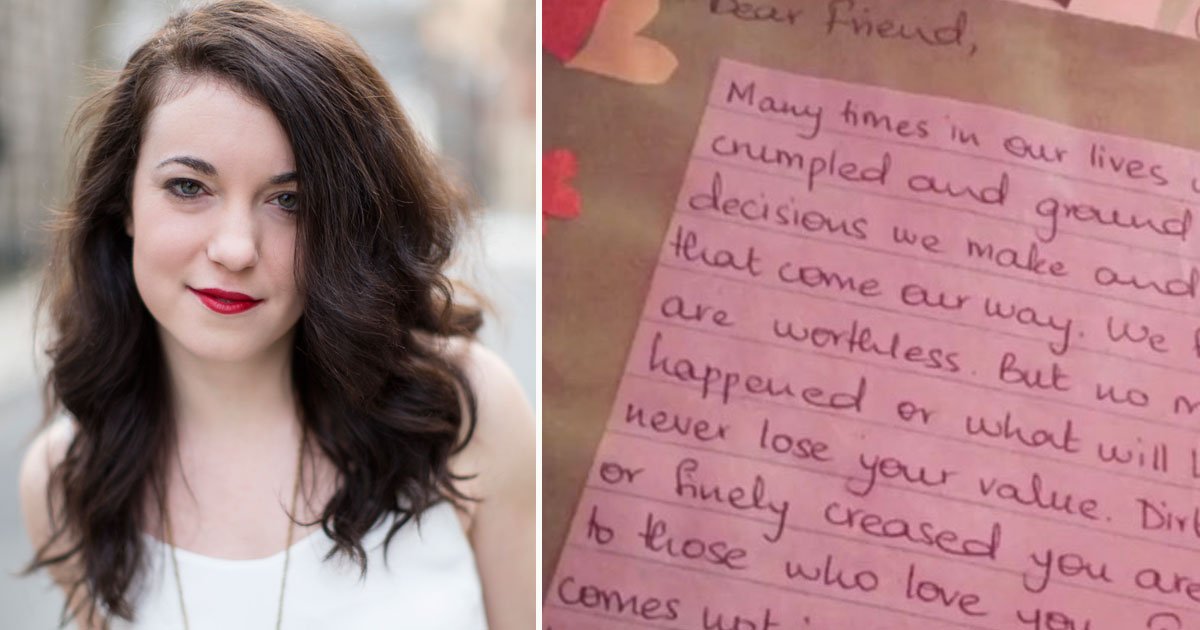 Dear Friend,
Many times in our lives
crumpled and ground
decisions we make and
that come our way. We
are worthless. But no
happened or what will
never lose your value. Dirt
or finely creased you are
to those who love you
comes